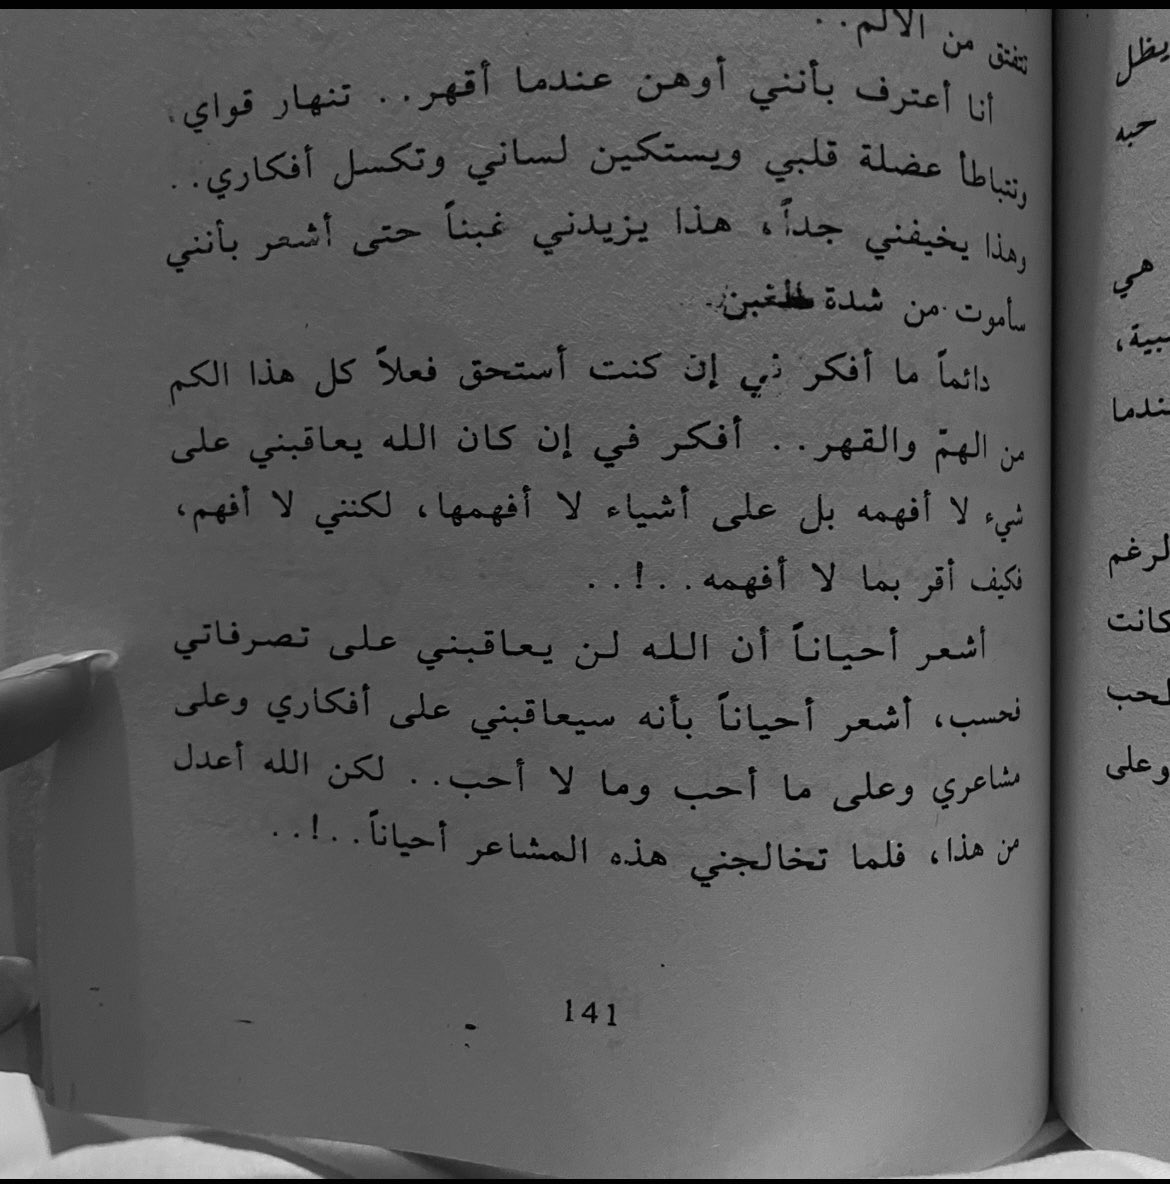 تتفتق من الألم..
أنا أعترف بأنني أوهن عندما أقهر.. تنهار قواي،
وتتباطأ عضلة قلبي ويستكين لساني وتكسل أفكاري..
وهذا يخيفني جداً، هذا يزيدني غبناً حتى أشعر بأنني
سأموت من شدة الغبن..
دائماً ما أفكر في إن كنت أستحق فعلاً كل هذا الكم
من الهمّ والقهر.. أفكر في إن كان الله يعاقبني على
شيء لا أفهمه بل على أشياء لا أفهمها، لكنني لا أفهم،
فكيف أقر بما لا أفهمه..!..
أشعر أحياناً أن الله لن يعاقبني على تصرفاتي
فحسب، أشعر أحياناً بأنه سيعاقبني على أفكاري وعلى
مشاعري وعلى ما أحب وما لا أحب.. لكن الله أعدل
من هذا، فلما تخالجني هذه المشاعر أحياناً..!..
141
يظل
حبه
هي
كانت
وعلى